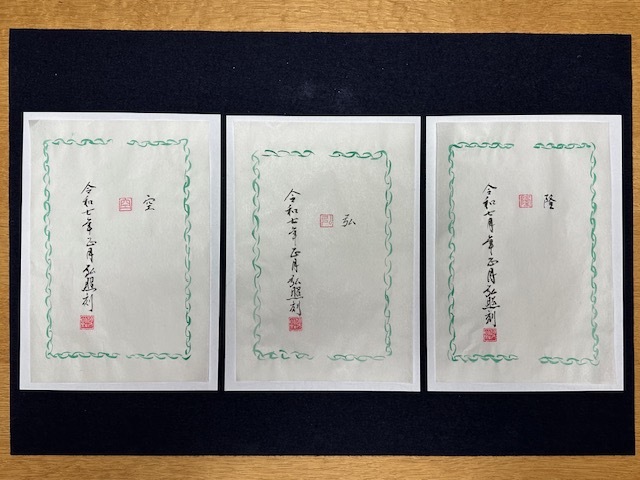 空
令和七年正月弘照刻
弘
令和七年正月弘照刻
隆
令和七月年正月弘照刻